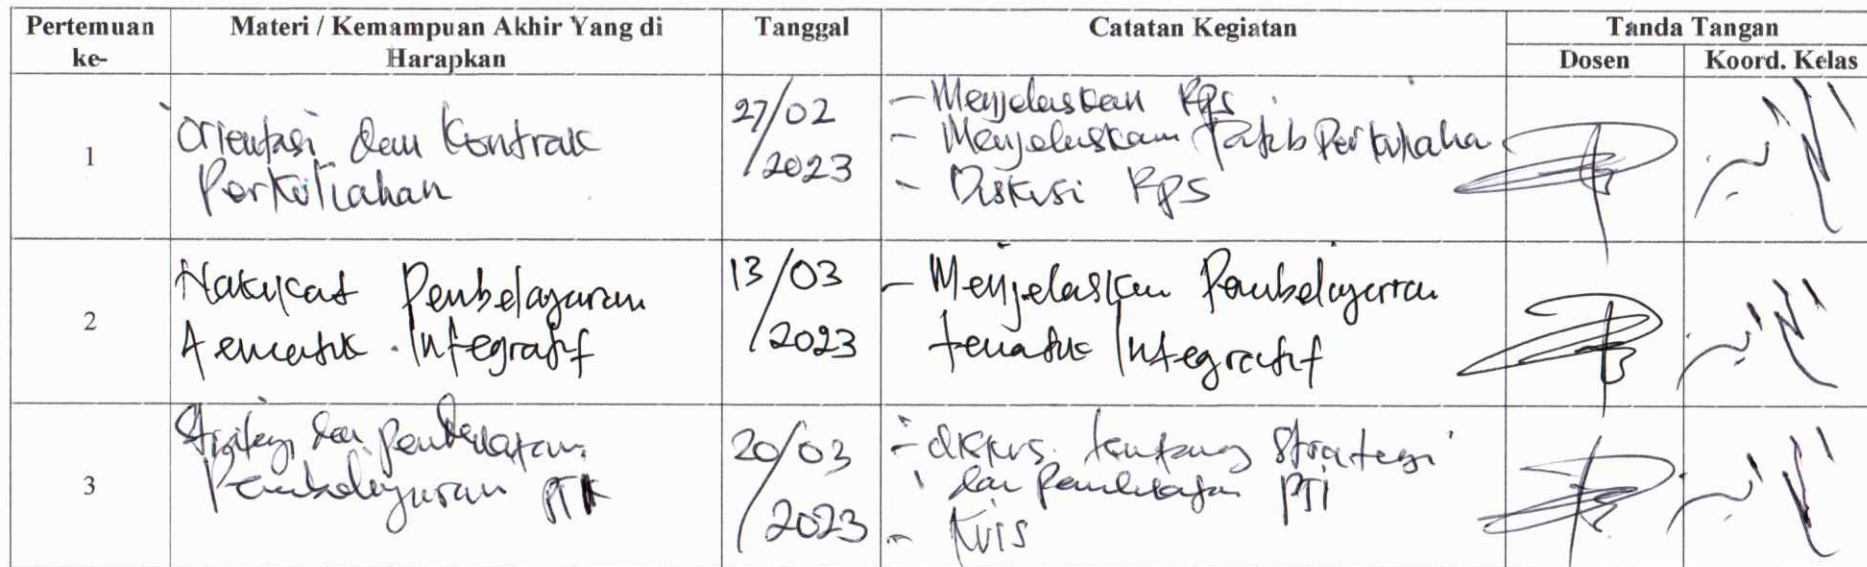 Pertemuan ke-
Materi / Kemampuan Akhir Yang di Harapkan
Tanggal
Catatan Kegiatan
Tanda Tangan
Dosen
Koord. Kelas
1
Orientasi dan Kontrak
Perkuliahan
27/02
/2023
- Menjelaskan RPS
- Menjelaskan Tatib Perkuliaha
- Diskusi RPS
2
Hakikat Pembelajaran
Tematik Integratif
13/03
/2023
- Menjelaskan Pembelajaran
tematik Integratif
3
Strategi dan pendekatan
Pembelajaran
20/03
/2023
- diskus. tentang Strategi
dan Pendekatan PTI
- Kuis